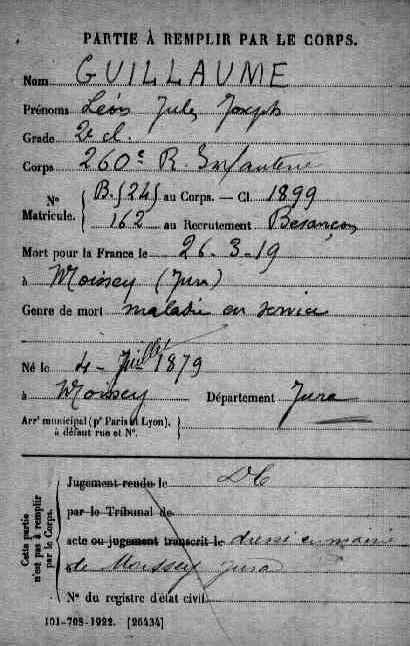 PARTIE À REMPLIR PAR LE CORPS.
Nom GUILLAUME
Prénoms Léon Jules Joseph
Grade 2e cl.
Corps 260e R. Infanterie
N° Matricule. B.5245 au Corps. — Cl. 1899
162 au Recrutement Besançon
Mort pour la France le 26-3-19
à Moissey (Jura)
Genre de mort maladie en service
Né le 4 - Juillet 1879
à Moissey Département Jura
Arrt municipal (pr Paris et Lyon),
à défaut rue et N°.
Cette partie n'est pas à remplir par le Corps.
Jugement rendu le DC
par le Tribunal de
acte ou jugement transcrit le dressé en mairie
de Moissey Jura
N° du registre d'état civil
101-708-1922. [26434]